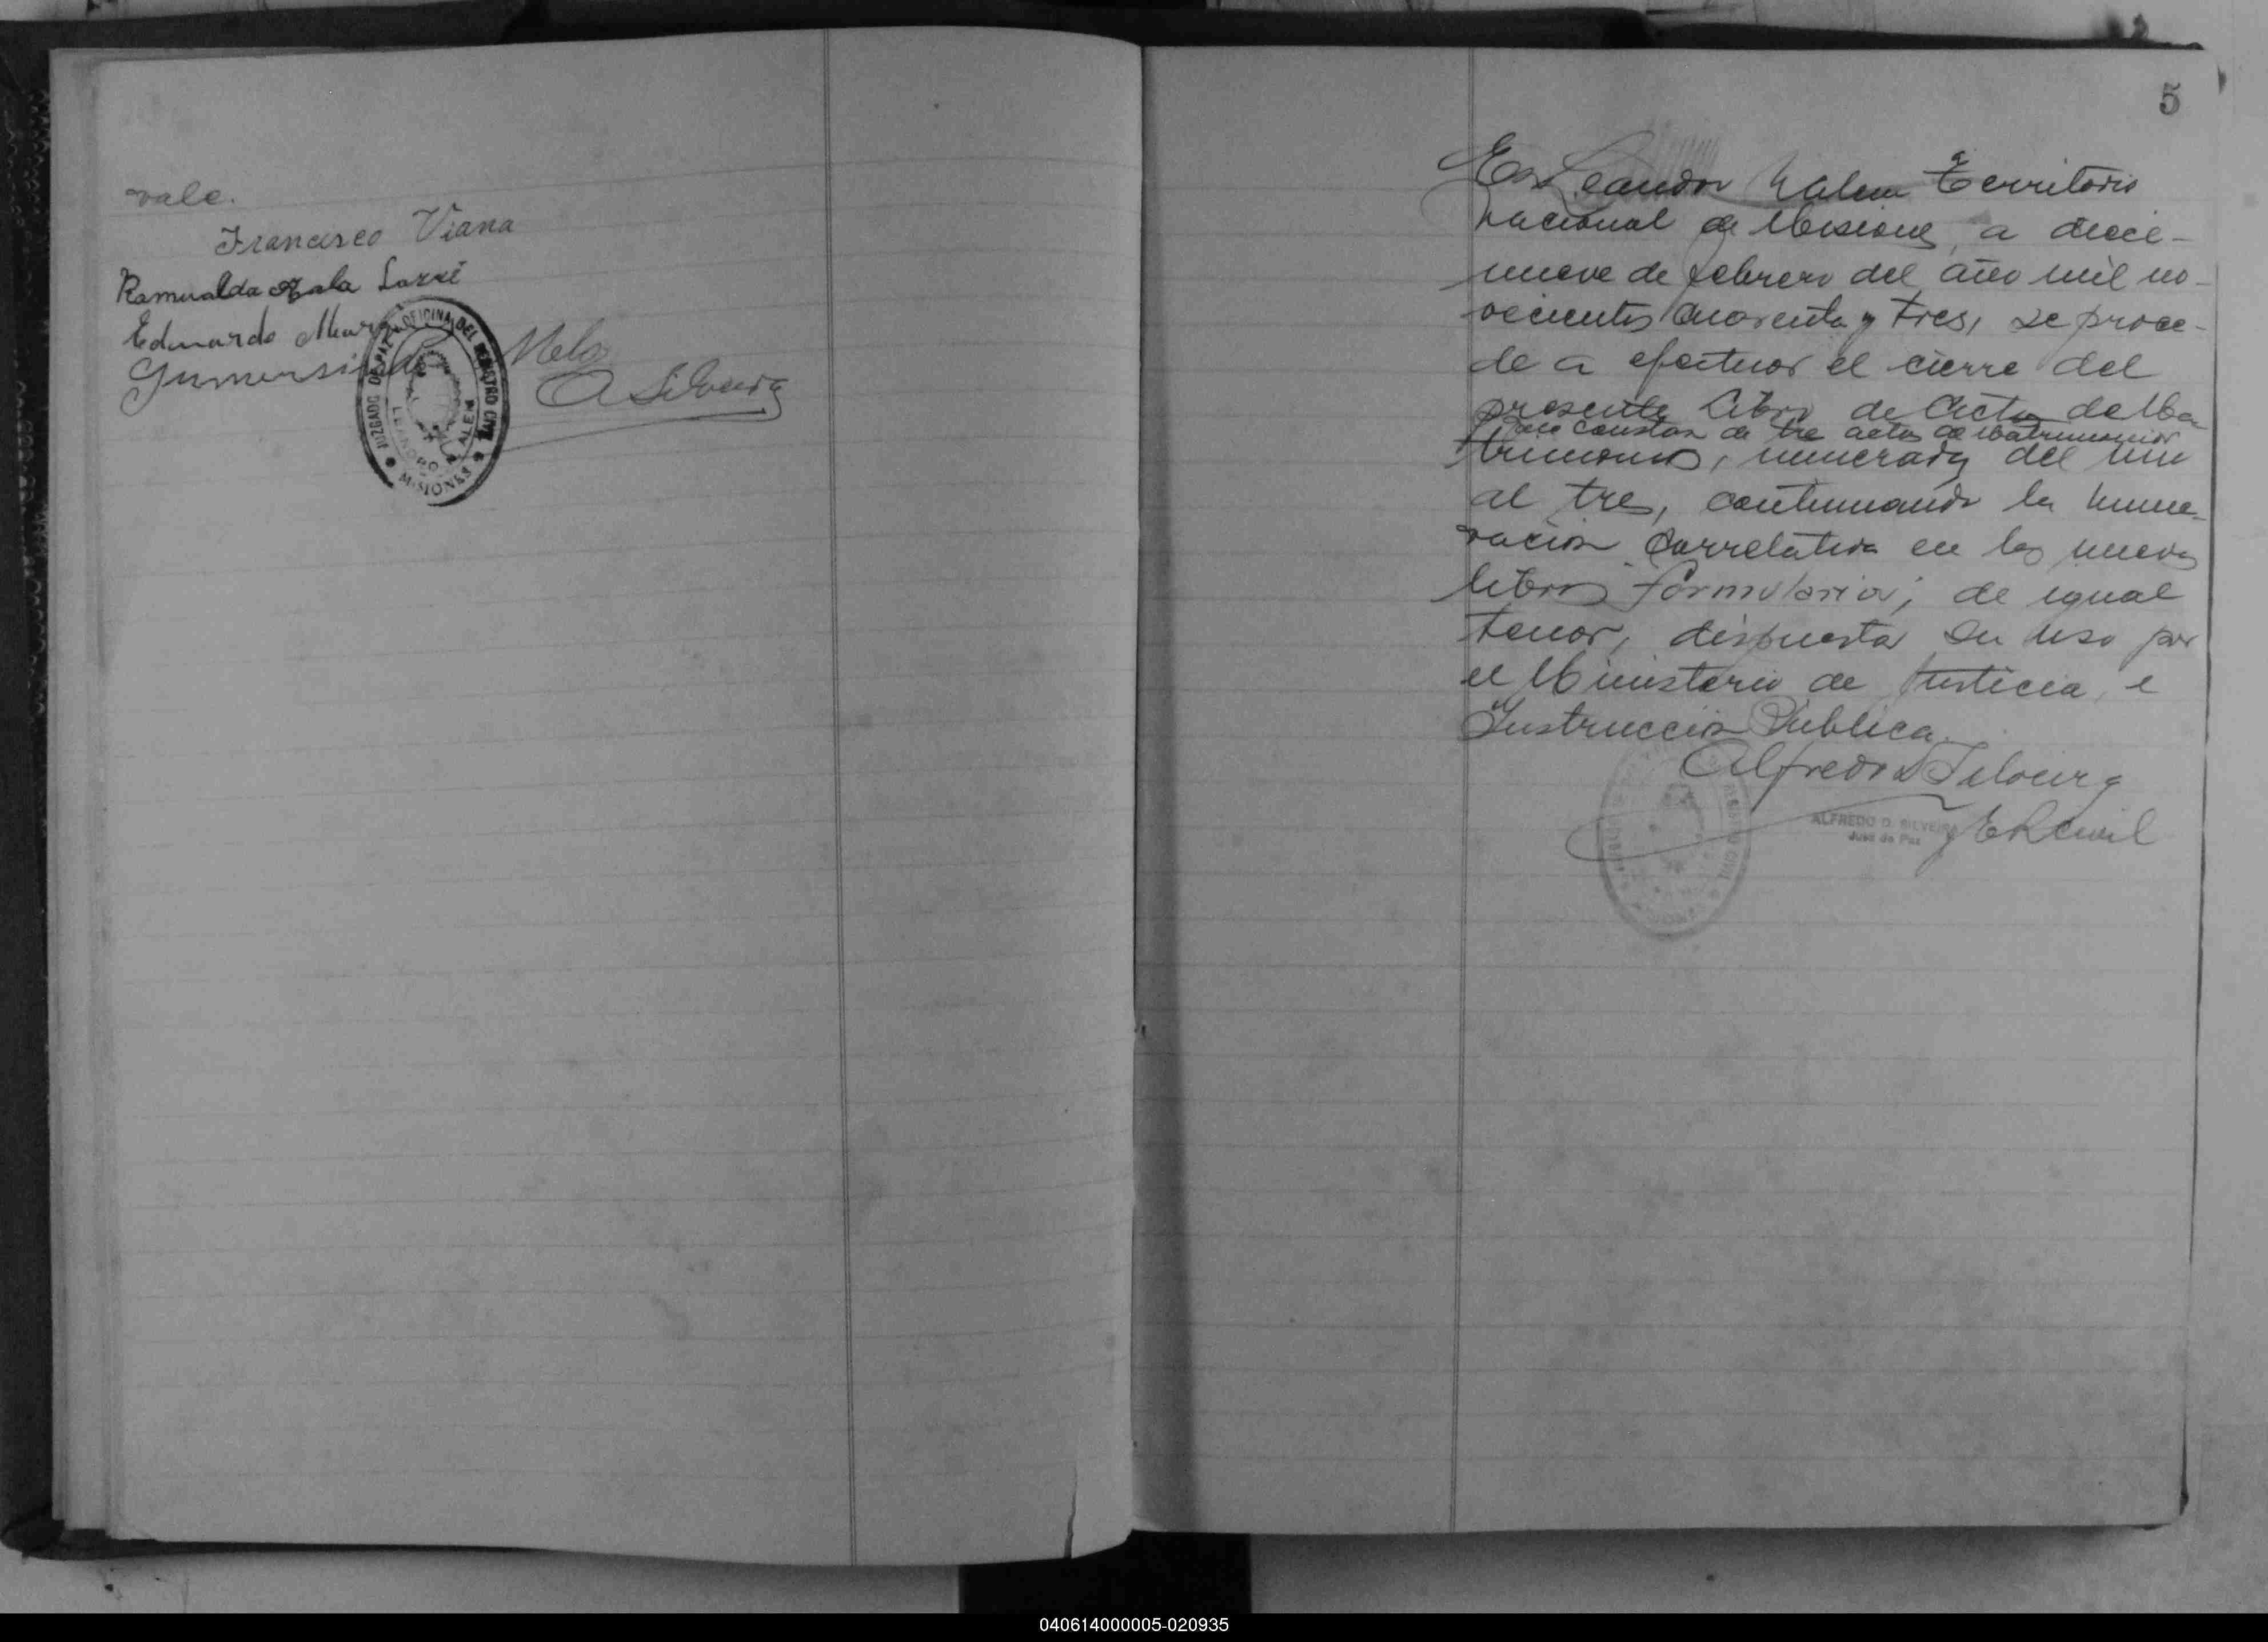 vale.
Francisco Viana
Ramualda Larré
Eduardo
Gumersindo Melo
A Silveira
JUZGADO DE PAZ OFICINA DEL REGISTRO CIVIL
LEANDRO N. ALEM
MISIONES
5
En Leandro N Alem Territorio
Nacional de Misiones, a dieci-
nueve de febrero del año mil no-
vecientos cuarenta y tres, se proce-
de a efectuar el cierre del
presente Libro de Actas de Ma-
que constan de tre actas de Matrimonios
trimonios, numeradas del uno
al tres, continuando la nume-
ración correlativa en los nuevos
libros formularios; de igual
tenor, dispuesta su uso por
el Ministerio de Justicia, e
Instrucción Pública.
Alfredo D Silveira
REGISTRO CIVIL
ALFREDO D. SILVEIRA
Juez de Paz
y E R Civil
040614000005-020935